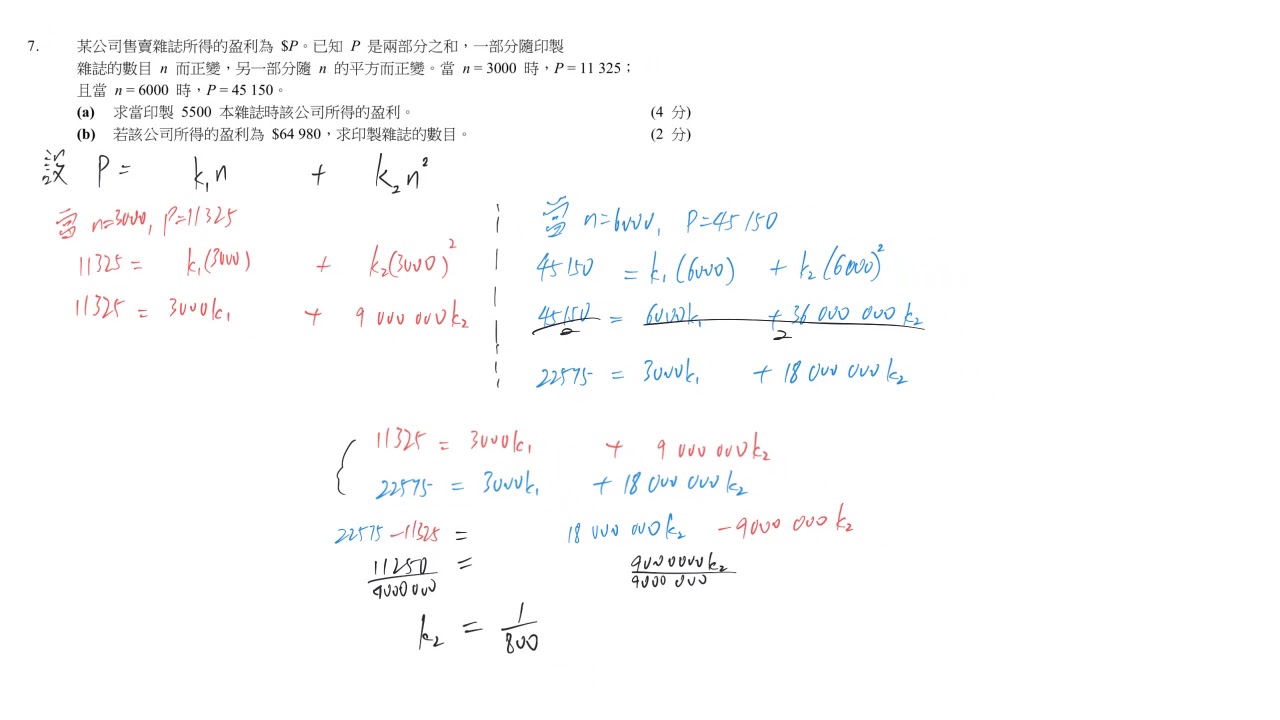 7. 某公司售賣雜誌所得的盈利為 $P。已知 P 是兩部分之和，一部分隨印製
雜誌的數目 n 而正變，另一部分隨 n 的平方而正變。當 n = 3000 時，P = 11 325；
且當 n = 6000 時，P = 45 150。
(a) 求當印製 5500 本雜誌時該公司所得的盈利。 (4 分)
(b) 若該公司所得的盈利為 $64 980，求印製雜誌的數目。 (2 分)
設 P = k₁n + k₂n²
當 n=3000, P=11325
11325 = k₁(3000) + k₂(3000)²
11325 = 3000k₁ + 9 000 000k₂
當 n=6000, P=45150
45150 = k₁(6000) + k₂(6000)²
45150/2 = (6000k₁ + 36 000 000k₂)/2
22575 = 3000k₁ + 18 000 000k₂
{ 11325 = 3000k₁ + 9 000 000k₂
22575 = 3000k₁ + 18 000 000k₂
22575 - 11325 = 18 000 000k₂ - 9000 000k₂
11250/9000000 = 9000000k₂/9000 000
k₂ = 1/800